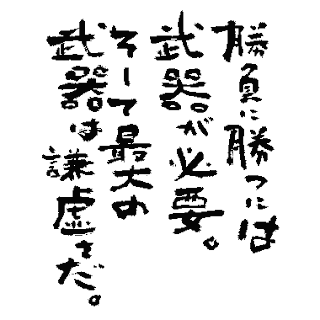 勝負に勝つには
武器が必要。
そして最大の
武器は謙虚さだ。